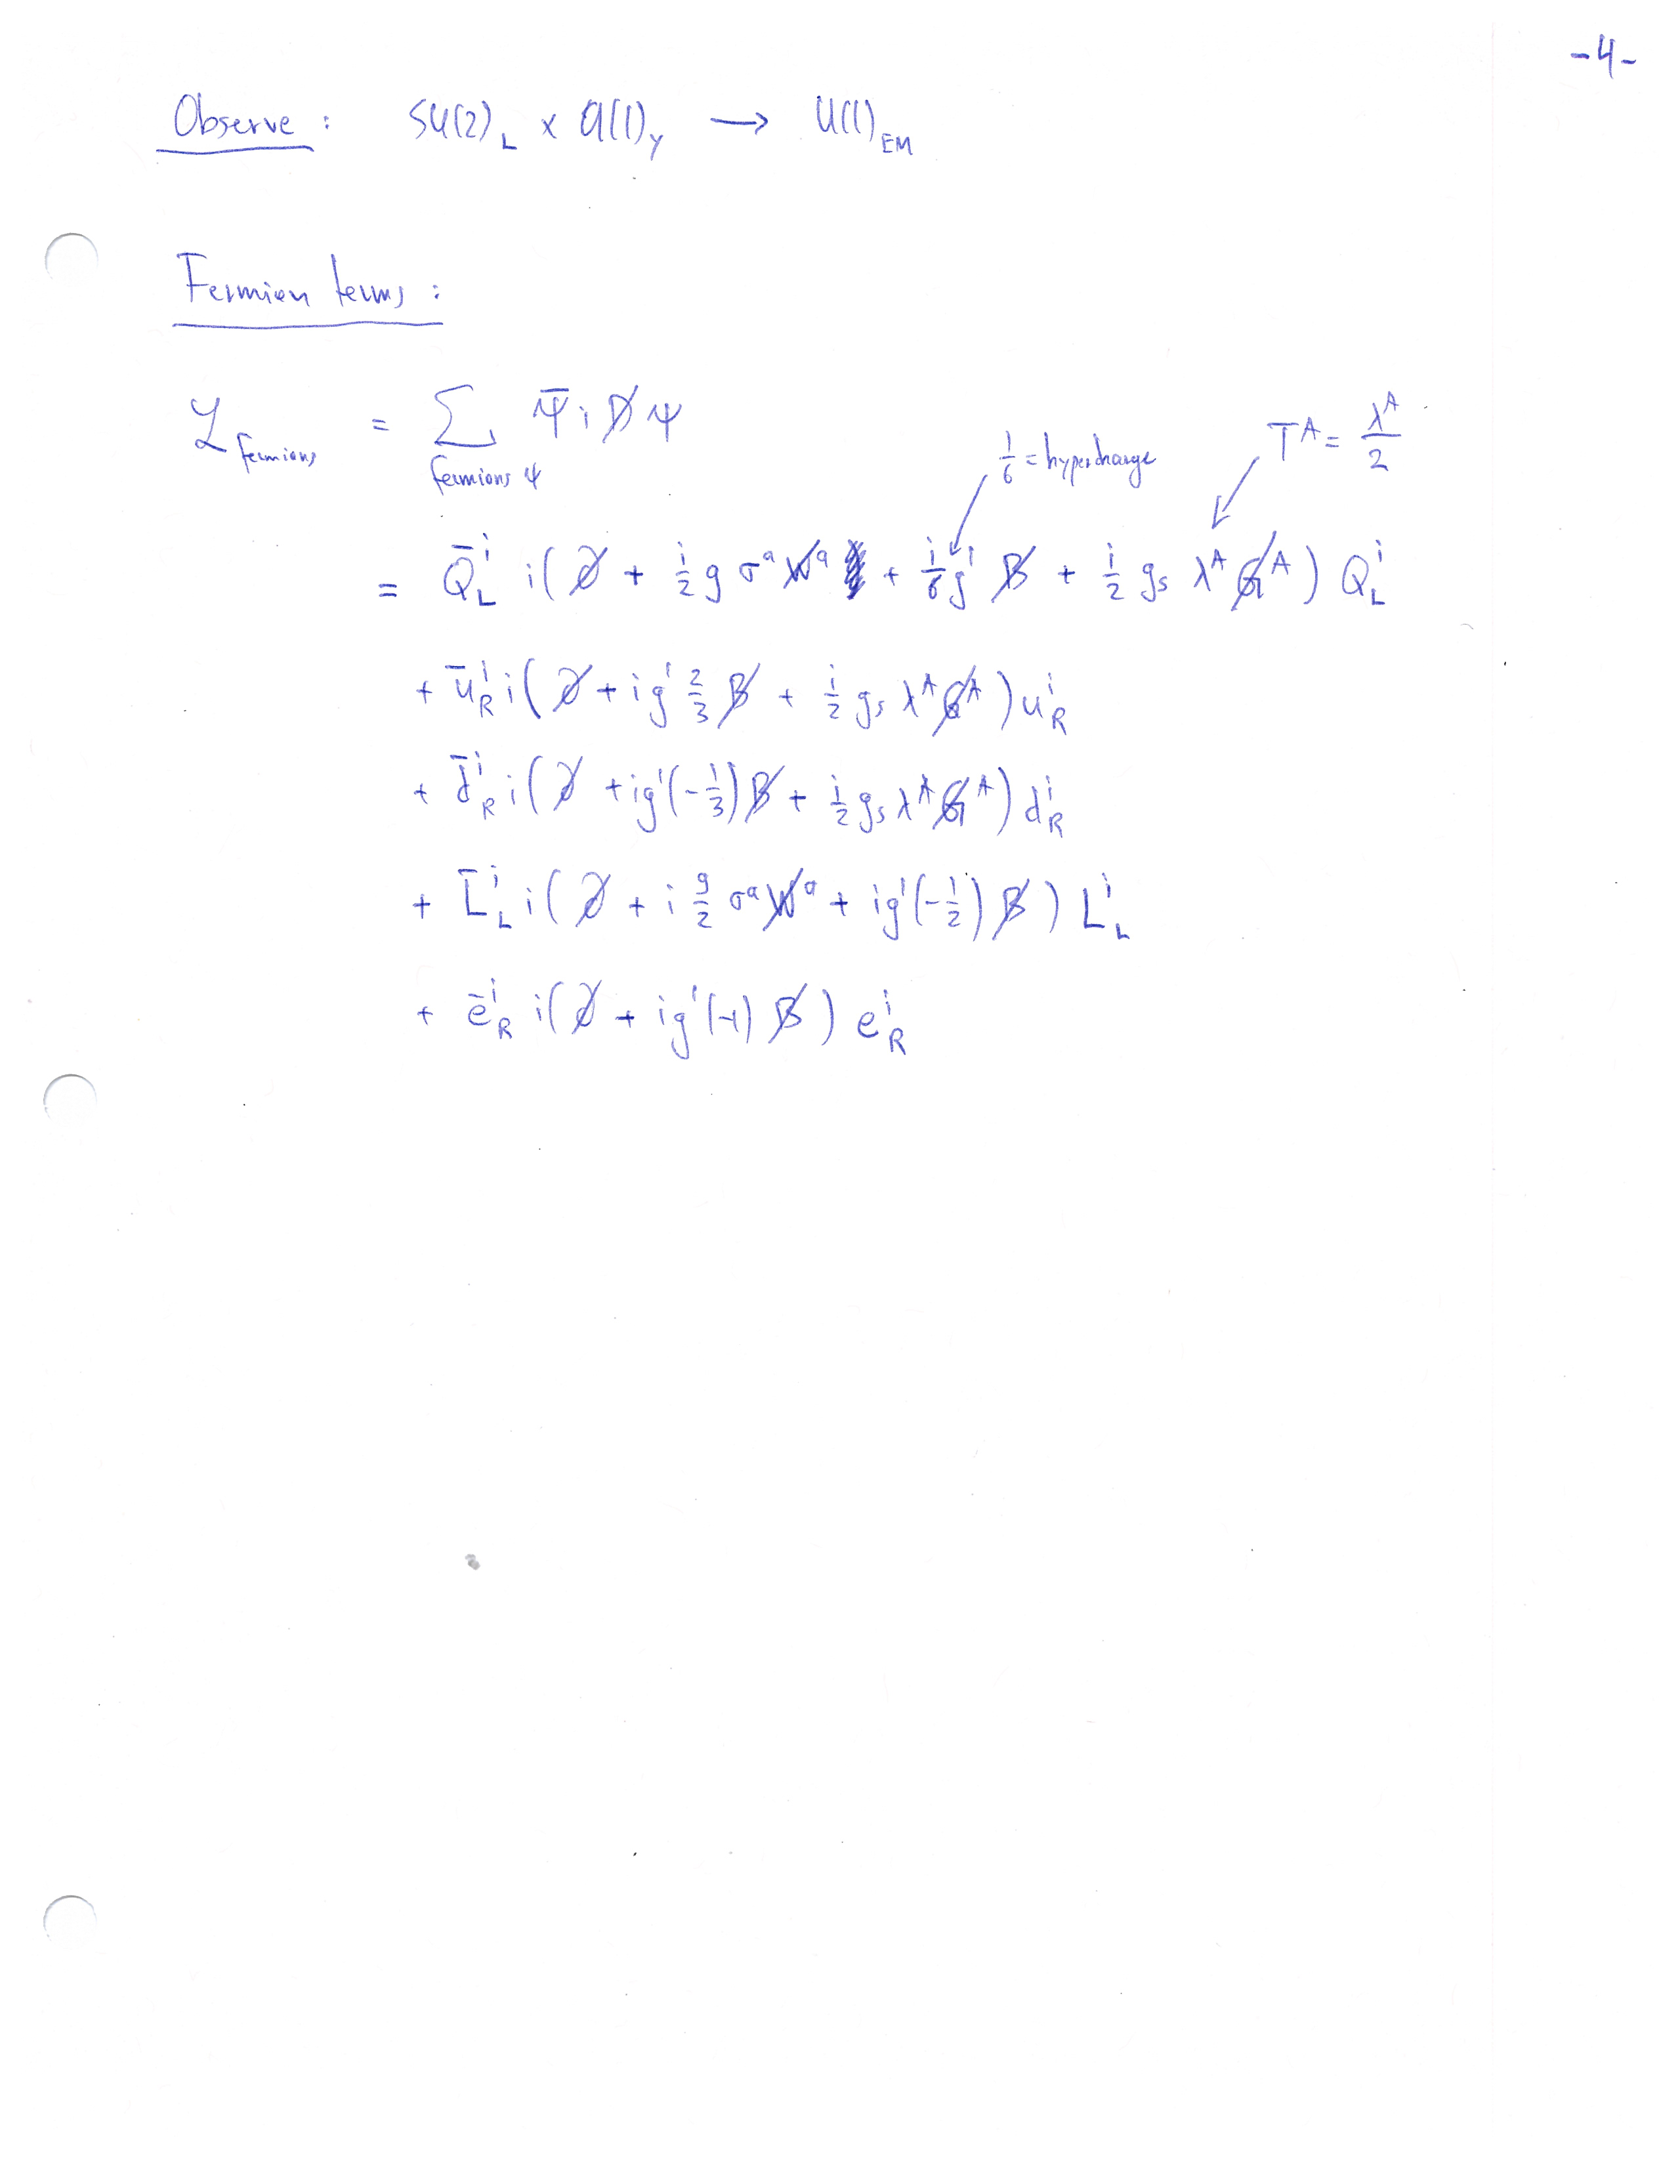 -4-
Observe : SU(2)_L × U(1)_Y → U(1)_EM
Fermion terms :
ℒ_fermions = Σ_{fermions ψ} ψ̄ i D̸ ψ
1/6 = hypercharge
T^A = λ^A/2
= Q̄_L^i i( ∂̸ + i/2 g σ^a W̸^a + i/6 g' B̸ + i/2 g_s λ^A G̸^A ) Q_L^i
+ ū_R^i i( ∂̸ + i g' 2/3 B̸ + i/2 g_s λ^A G̸^A ) u_R^i
+ d̄_R^i i( ∂̸ + i g' (-1/3) B̸ + i/2 g_s λ^A G̸^A ) d_R^i
+ L̄_L^i i( ∂̸ + i g/2 σ^a W̸^a + i g' (-1/2) B̸ ) L_L^i
+ ē_R^i i( ∂̸ + i g' (-1) B̸ ) e_R^i